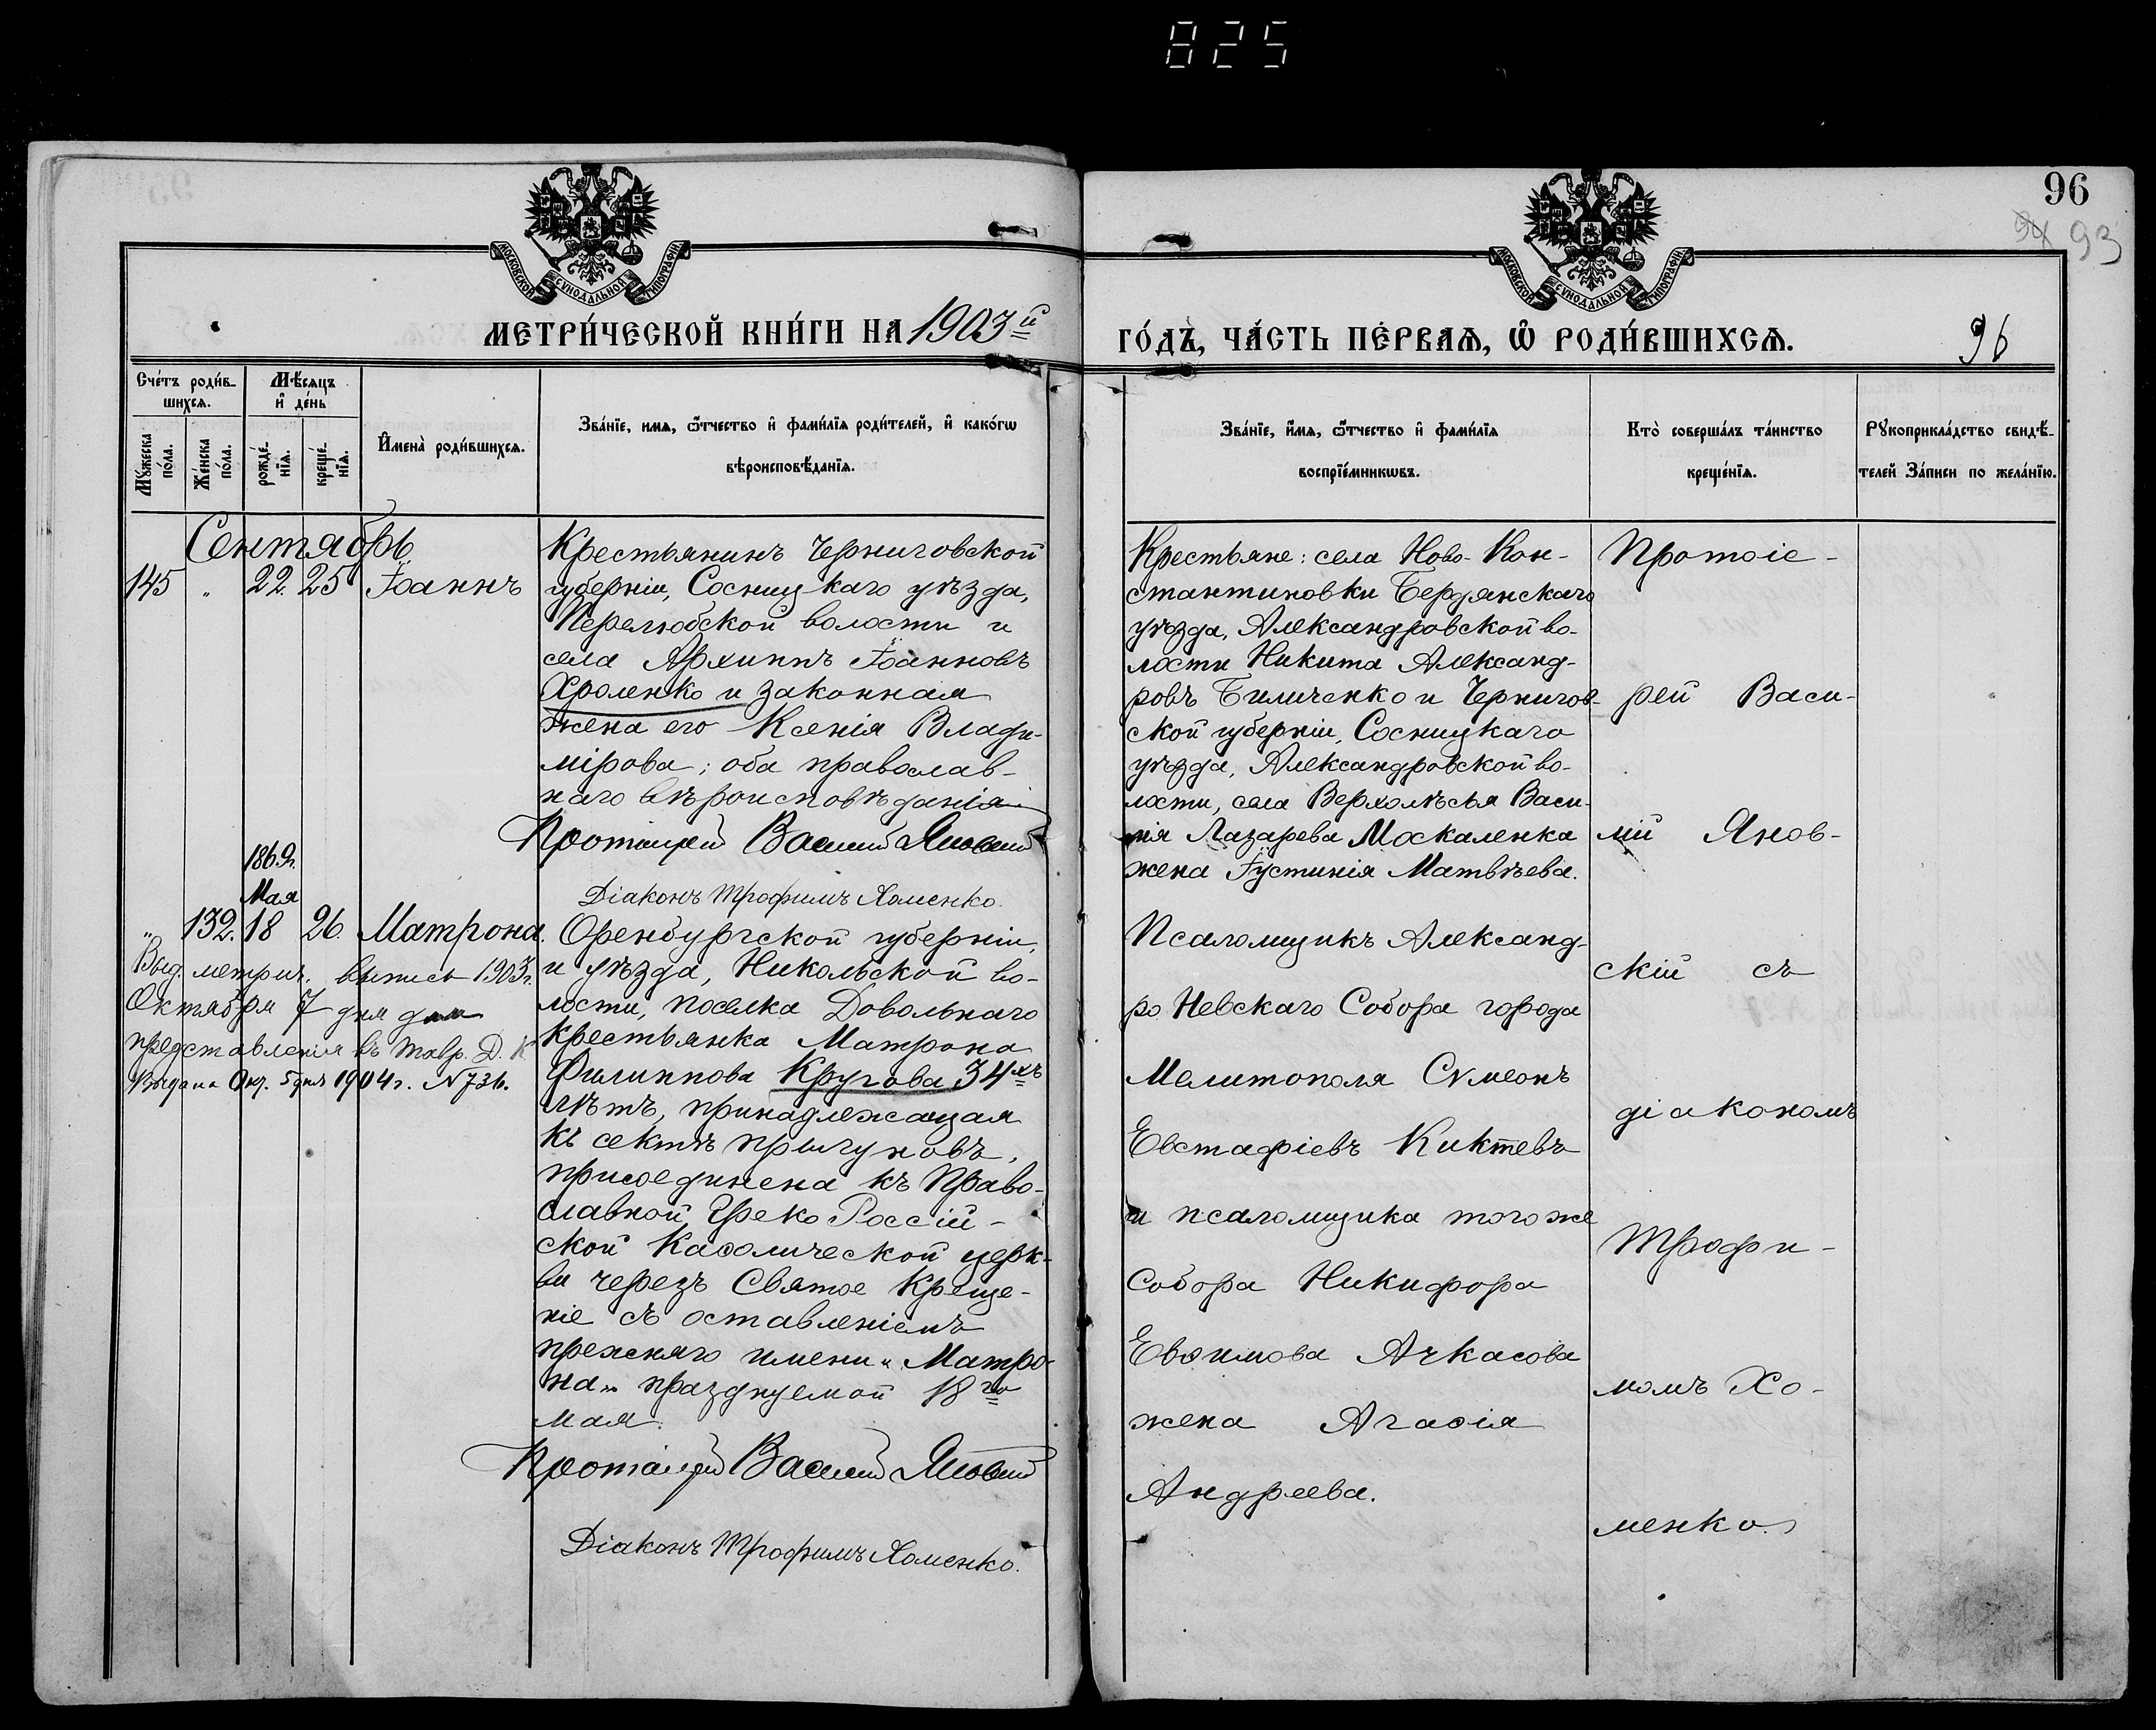 825
96
94 93
МОСКОВСКОЙ СѴНОДАЛЬНОЙ ТИПОГРАФІИ
МОСКОВСКОЙ СѴНОДАЛЬНОЙ ТИПОГРАФІИ
МЕТРИ́ЧЕСКОЙ КНИ́ГИ НА 1903й
ГО́ДЪ, ЧА́СТЬ ПЕ́РВАѦ, Ѽ РОДИ́ВШИХСѦ.
96
Сче́тъ роди́в-
шихсѧ.
Мѣ́сѧцъ
и҆ де́нь
Мꙋ́жеска
по́ла.
Же́нска
по́ла.
рожде́-
нїѧ.
креще́-
нїѧ.
И҆мена̀ роди́вшихсѧ.
Зва́нїе, имѧ, ѻ҆́тчество и҆ фами́лїѧ роди́телей, и҆ како́гѡ
вѣроисповѣ́данїѧ.
Зва́нїе, и҆́мѧ, ѻ҆́тчество и҆ фами́лїѧ
воспрїе́мникѡвъ.
Кто̀ соверша́лъ та́инство
креще́нїѧ.
Рꙋкоприкла́дство свидѣ́-
телей За́писи по жела́нїю.
Сентябрь
145 " 22 25 Іоаннъ
Крестьянинъ Черниговской
губерніи, Сосницкаго уѣзда,
Перелюбской волости и
села Архиппъ Іоанновъ
Хроленко и законная
жена его Ксенія Влади-
мірова; оба православ-
наго вѣроисповѣданія
Протоіерей Василій Яновскій
Діаконъ Трофимъ Хоменко.
Крестьяне: села Ново-Кон-
стантиновки Бердянскаго
уѣзда, Александровской во-
лости Никита Александ-
ровъ Биличенко и Чернигов-
ской губерніи, Сосницкаго
уѣзда, Александровской во-
лости, села Верхолѣсья Васи-
лія Лазарева Москаленка
жена Іустинія Матвѣева.
Протоіе-
рей Васи-
лій Янов-
скій съ
діакономъ
Трофи-
момъ Хо-
менко.
1869г.
Мая
" 132. 18 26. Матрона.
Выд. метрич. выпись 1903г.
Октября 7 дня для
представленія въ Тавр. Д. К
Выдана Окт. 5 дня 1904г. N 736.
Оренбургской губерніи,
и уѣзда, Никольской во-
лости, поселка Довольнаго
крестьянка Матрона
Филиппова Кругова 34хъ
лѣтъ, принадлежащая
къ сектѣ прыгуновъ,
присоединена къ Право-
славной Греко Россій-
ской Каѳолической церк-
ви черезъ Святое Креще-
ніе съ оставленіемъ
прежняго имени „Матро-
на" празднуемой 18го
мая.
Протоіерей Василій Яновскій
Діаконъ Трофимъ Хоменко.
Псаломщикъ Александ-
ро Невскаго Собора города
Мелитополя Сѵмеонъ
Евстафіевъ Киктевъ
и псаломщика тогоже
Собора Никифора
Евѳимова Ачкасова
жена Агаѳія
Андреева.